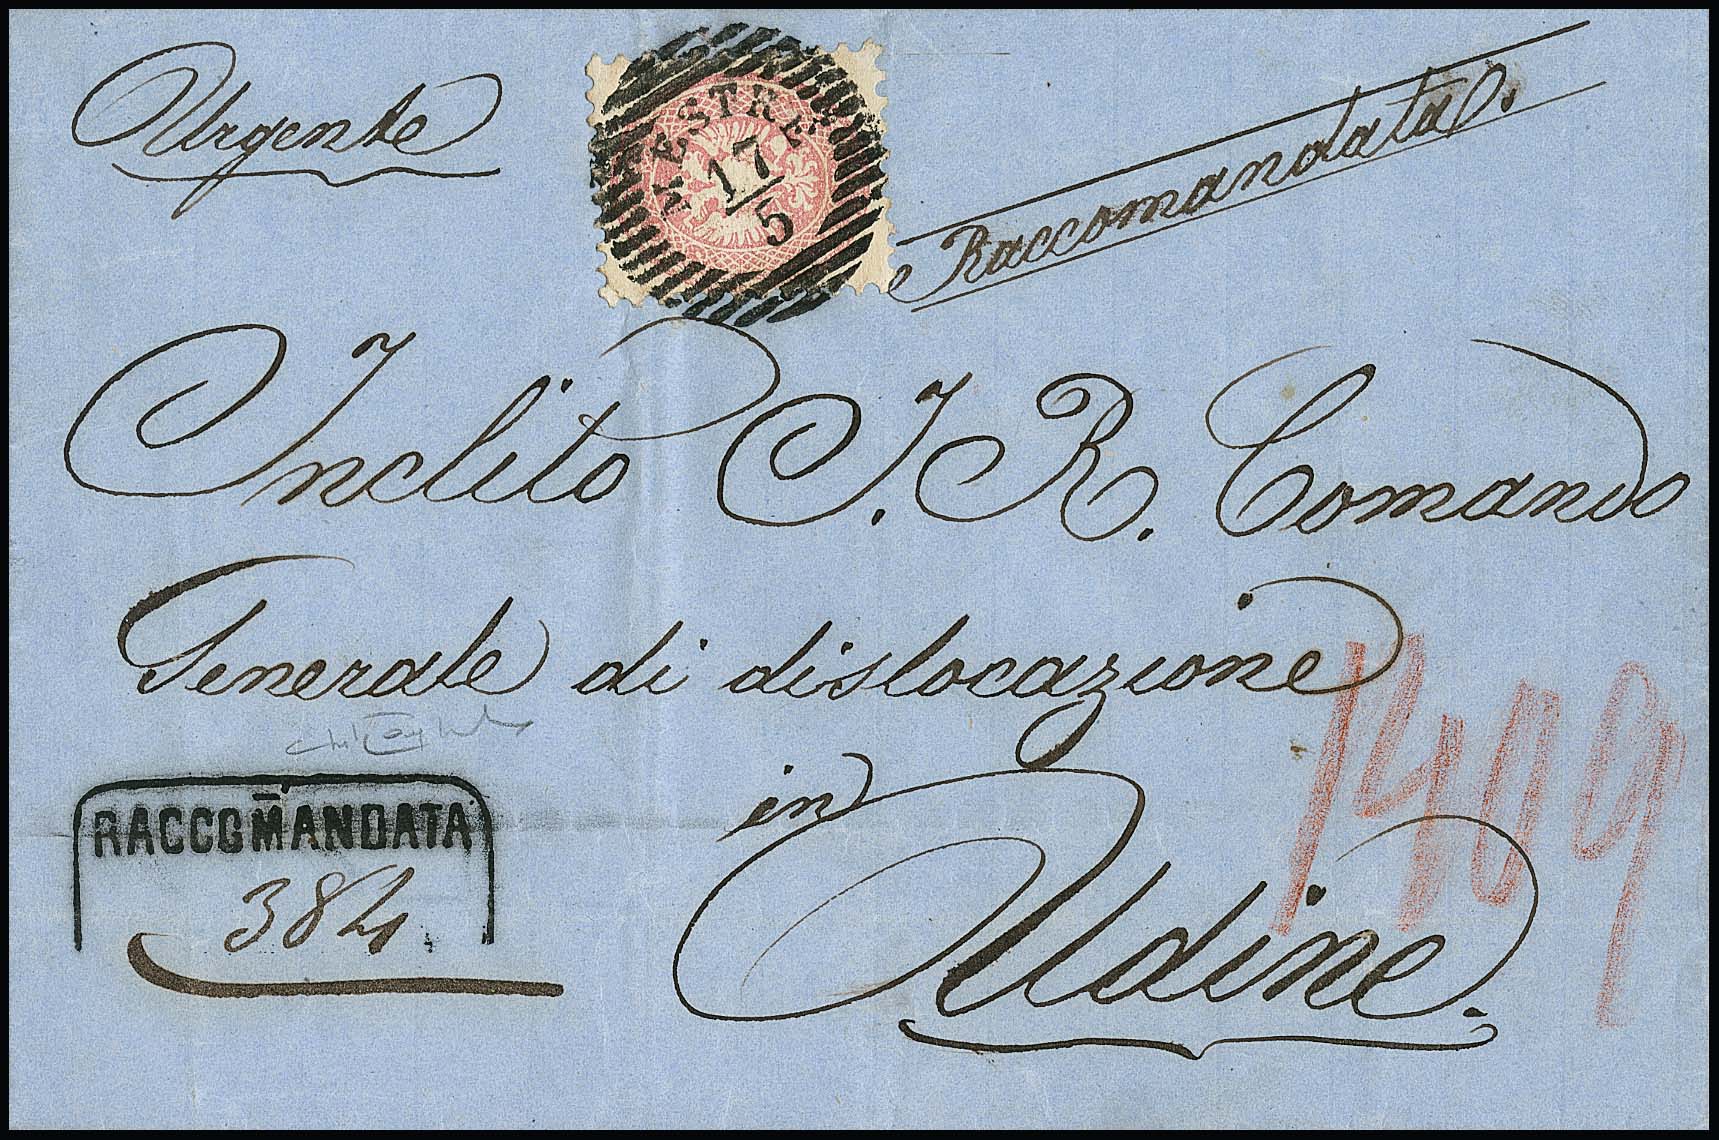 Urgente
MESTRE
17/5
Raccomandata.
Inclito I. R. Comando
Generale di dislocazione
in
Udine.
RACCOMANDATA
384.
1409